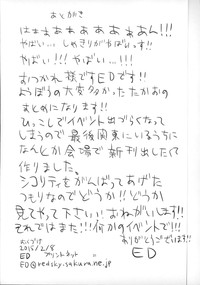 あとがき
はぁぁぁぁぁぁぁぁぁん!!!
やばい… しめきりがやばいっす!!
やばい!!! やばい…!!!
おつかれ様ですEDです!!
およぼうの大変多かったたかおの
まとめになります!!
ひっこしでイベント出づらくなって
しまうので最後関東にいるうちに
なんとか会場で新刊出したくて
作りました。
シコリティをがんばってあげた
つもりなのでどうか!!どうか
見てやって下さい!!おねがいします!!
それではまた!!!何かのイベントで!!!
ありがとうございます!!
おくづけ
2015/2/8
ED プリントネット
ED@redsky.sakura.ne.jp
ED